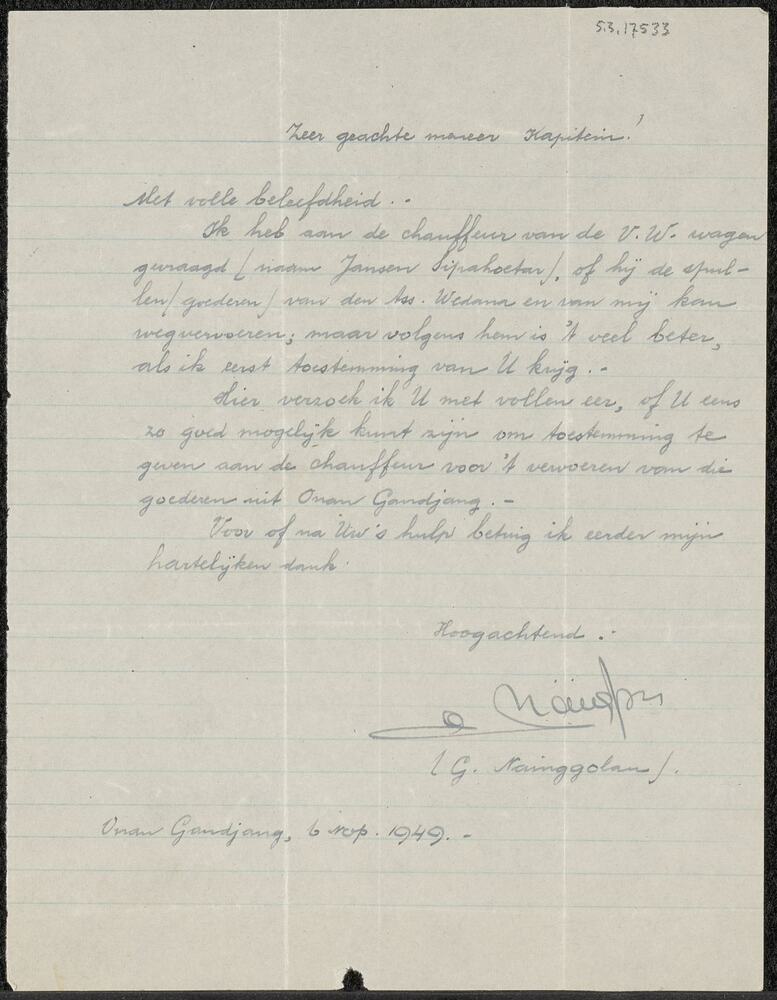 5.3.17533
Zeer geachte meneer Kapitein!
Met volle beleefdheid. -
Ik heb aan de chauffeur van de V.W. wagen
gevraagd (naam Jansen Sipahoetar), of hij de spul-
len (goederen) van den Ass. Wedana en van mij kan
wegvervoeren; maar volgens hem is 't veel beter,
als ik eerst toestemming van U krijg. -
Hier verzoek ik U met vollen eer, of U eens
zo goed mogelijk kunt zijn om toestemming te
geven aan de chauffeur voor 't vervoeren van die
goederen uit Onan Gandjang. -
Voor of na Uw's hulp betuig ik eerder mijn
hartelijken dank.
Hoogachtend. -
(G. Nainggolan).
Onan Gandjang, 6 Nop. 1949. -